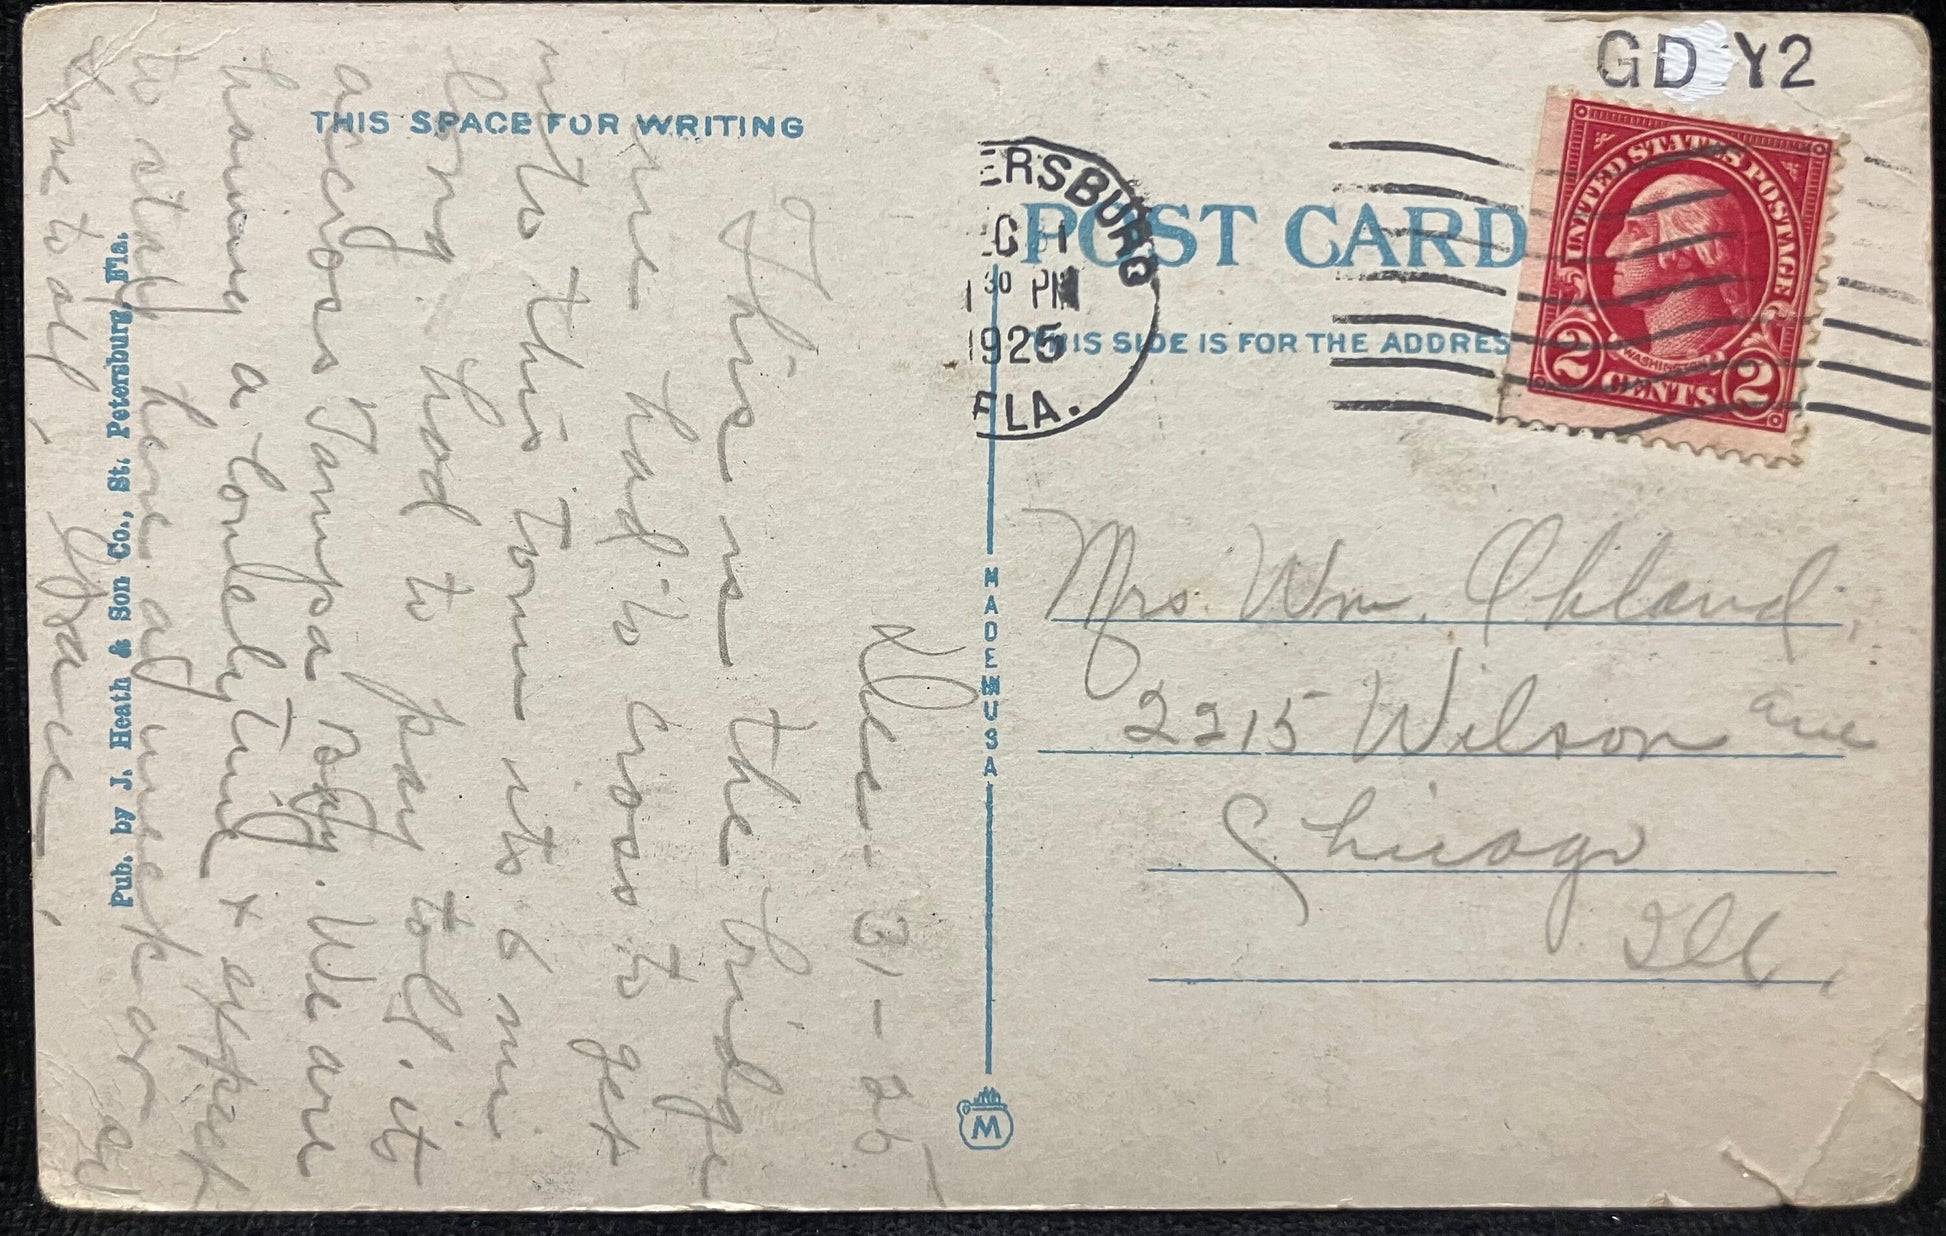 GD Y2
THIS SPACE FOR WRITING
ERSBURG
C 31
1 30 PM
1925
FLA.
POST CARD
THIS SIDE IS FOR THE ADDRES
UNITED STATES POSTAGE
WASHINGTON
2 CENTS 2
Dec - 31 - 25
This is the bridge
we had to cross to get
into this town its 6 mi
long. had to pay toll. it
across Tampa Bay. We are
having a lovely time & expect
to stay here a week or so
Love to all,
Grace.
Pub. by J. Heath & Son Co., St. Petersburg, Fla.
MADE IN USA
M
Mrs. Wm.
2215 Wilson ave
Chicago
Ill.